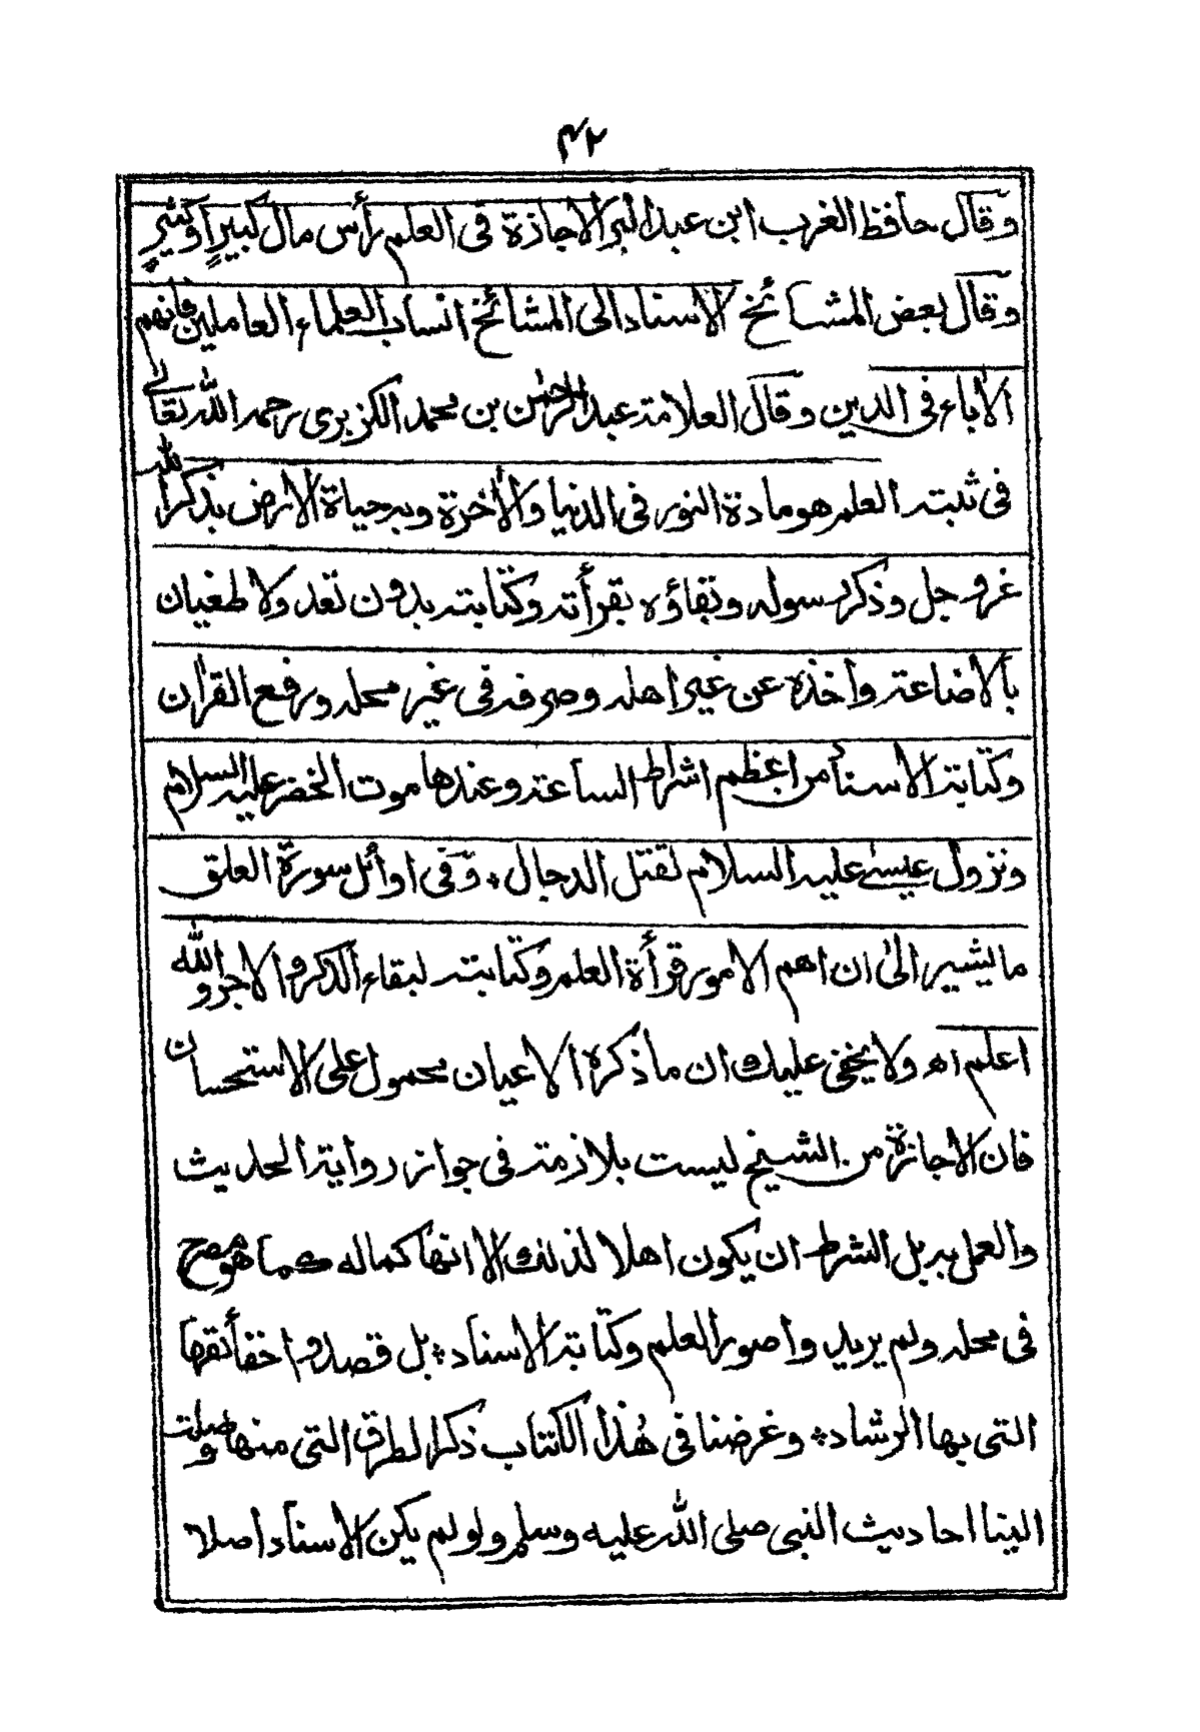 ٤٢
وقال حافظ الغرب ابن عبد البر الاجازة فى العلم رأس مال كبيرٍ او كثيرٍ
وقال بعض المشائخ الاسناد الى المشائخ انساب العلماء العاملين فانهم
الاٰباء فى الدين وقال العلامة عبد الرحمٰن بن محمد الكزبرى رحمه الله تعالى
فى ثبته العلم هو مادة النور فى الدنيا والأخرة وبه حياة الارض بذكر الله
عز وجل وذكر رسوله وبقاؤه بقرأته وكتابته بدون تعد ولا طغيان
بالاضاعة واخذه عن غير اهله وصرفه فى غير محله ورفع القراٰن
وكتابة الاسناد من اعظم اشراط الساعة وعندها موت الخضر عليه السلام
ونزول عيسىٰ عليه السلام لقتل الدجال ٭ وفى اوائل سورة العلق
ما يشير الىٰ ان اهم الامور قرأة العلم وكتابته لبقاء الذكر والاجر والله
اعلم اه ولا يخفى عليك ان ما ذكره الاعيان محمول على الاستحسان
فان الاجازة من الشيخ ليست بلازمة فى جواز رواية الحديث
والعمل به بل الشرط ان يكون اهلا لذلك الا انها كماله كما هو مصرح
فى محله ولم يريدوا صور العلم وكتابة الاسناد ٭ بل قصدوا حقائقها
التى بها الرشاد ٭ وغرضنا فى هٰذا الكتاب ذكر الطرق التى منها وصلت
الينا احاديث النبى صلى الله عليه وسلم ولو لم يكن الاسناد اصلا